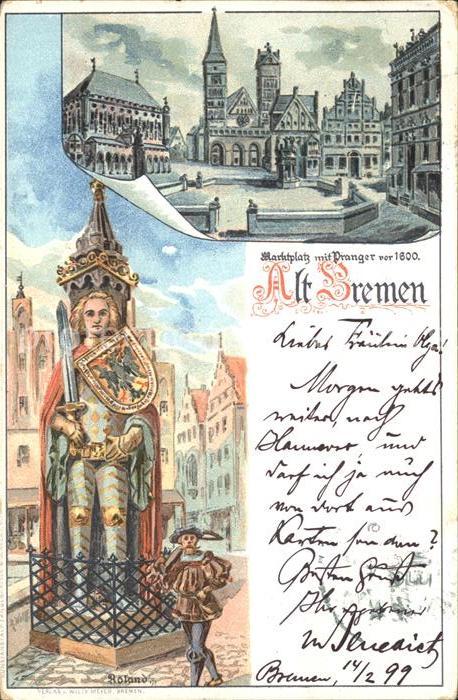 Marktplatz mit Pranger vor 1600.
Alt Bremen
Liebes Fräulein Olga!
Morgen gehts
weiter, nach
Hannover, und
darf ich ja auch
von dort aus
Karten senden?
Besten Gruß
Ihr
Benedict
Bremen, 14/2 99
Roland.
VERLAG v. WILLY MEYER, BREMEN.